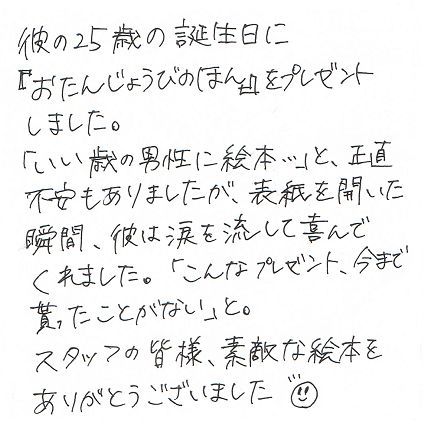 彼の25歳の誕生日に
『おたんじょうびのほん』をプレゼント
しました。
「いい歳の男性に絵本…」と、正直
不安もありましたが、表紙を開いた
瞬間、彼は涙を流して喜んで
くれました。「こんなプレゼント、今まで
貰ったことがない」と。
スタッフの皆様、素敵な絵本を
ありがとうございました